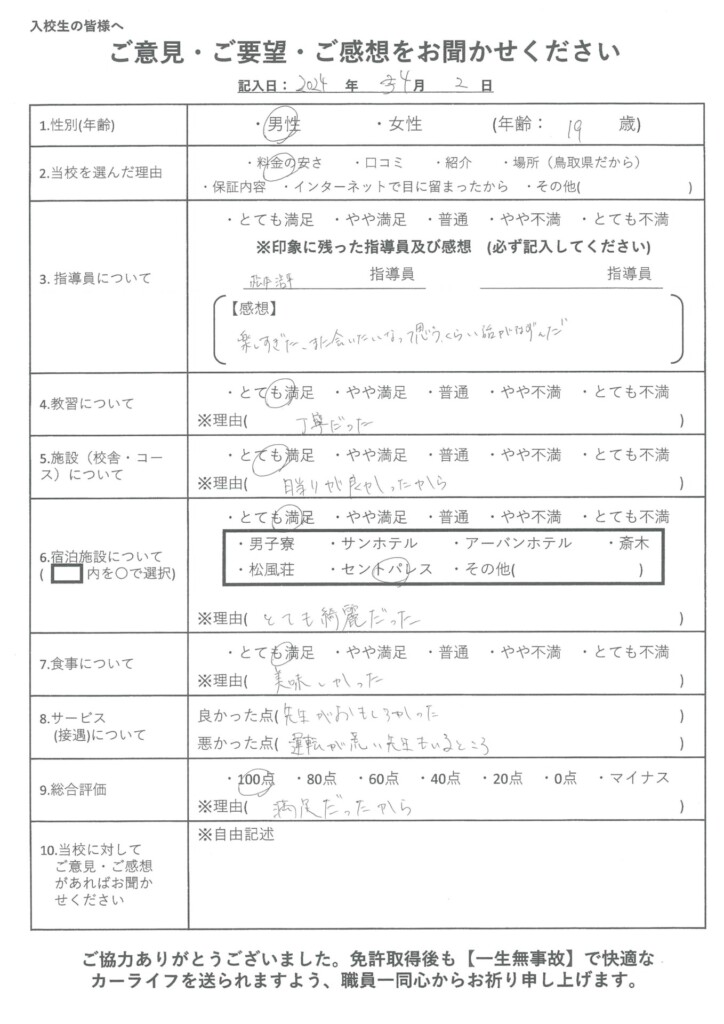 入校生の皆様へ
ご意見・ご要望・ご感想をお聞かせください
記入日： 2024 年 4月 2 日
1.性別(年齢)
・男性 ・女性 (年齢： 19 歳)
2.当校を選んだ理由
・料金の安さ ・口コミ ・紹介 ・場所（鳥取県だから）
・保証内容 ・インターネットで目に留まったから ・その他( )
3. 指導員について
・とても満足 ・やや満足 ・普通 ・やや不満 ・とても不満
※印象に残った指導員及び感想 (必ず記入してください)
指導員 指導員
【感想】
楽しすぎた、また会いたいなって思うくらい話がはずんだ
4.教習について
・とても満足 ・やや満足 ・普通 ・やや不満 ・とても不満
※理由( 丁寧だった )
5.施設（校舎・コース）について
・とても満足 ・やや満足 ・普通 ・やや不満 ・とても不満
※理由( 日当りが良かったから )
6.宿泊施設について
( 内を○で選択)
・とても満足 ・やや満足 ・普通 ・やや不満 ・とても不満
・男子寮 ・サンホテル ・アーバンホテル ・斎木
・松風荘 ・セントパレス ・その他( )
※理由( とても綺麗だった )
7.食事について
・とても満足 ・やや満足 ・普通 ・やや不満 ・とても不満
※理由( 美味しかった )
8.サービス
(接遇)について
良かった点( 先生がおもしろかった )
悪かった点( 運転が荒い先生もいるところ )
9.総合評価
・100点 ・80点 ・60点 ・40点 ・20点 ・0点 ・マイナス
※理由( 満足だったから )
10.当校に対して
ご意見・ご感想
があればお聞か
せください
※自由記述
ご協力ありがとうございました。免許取得後も【一生無事故】で快適な
カーライフを送られますよう、職員一同心からお祈り申し上げます。